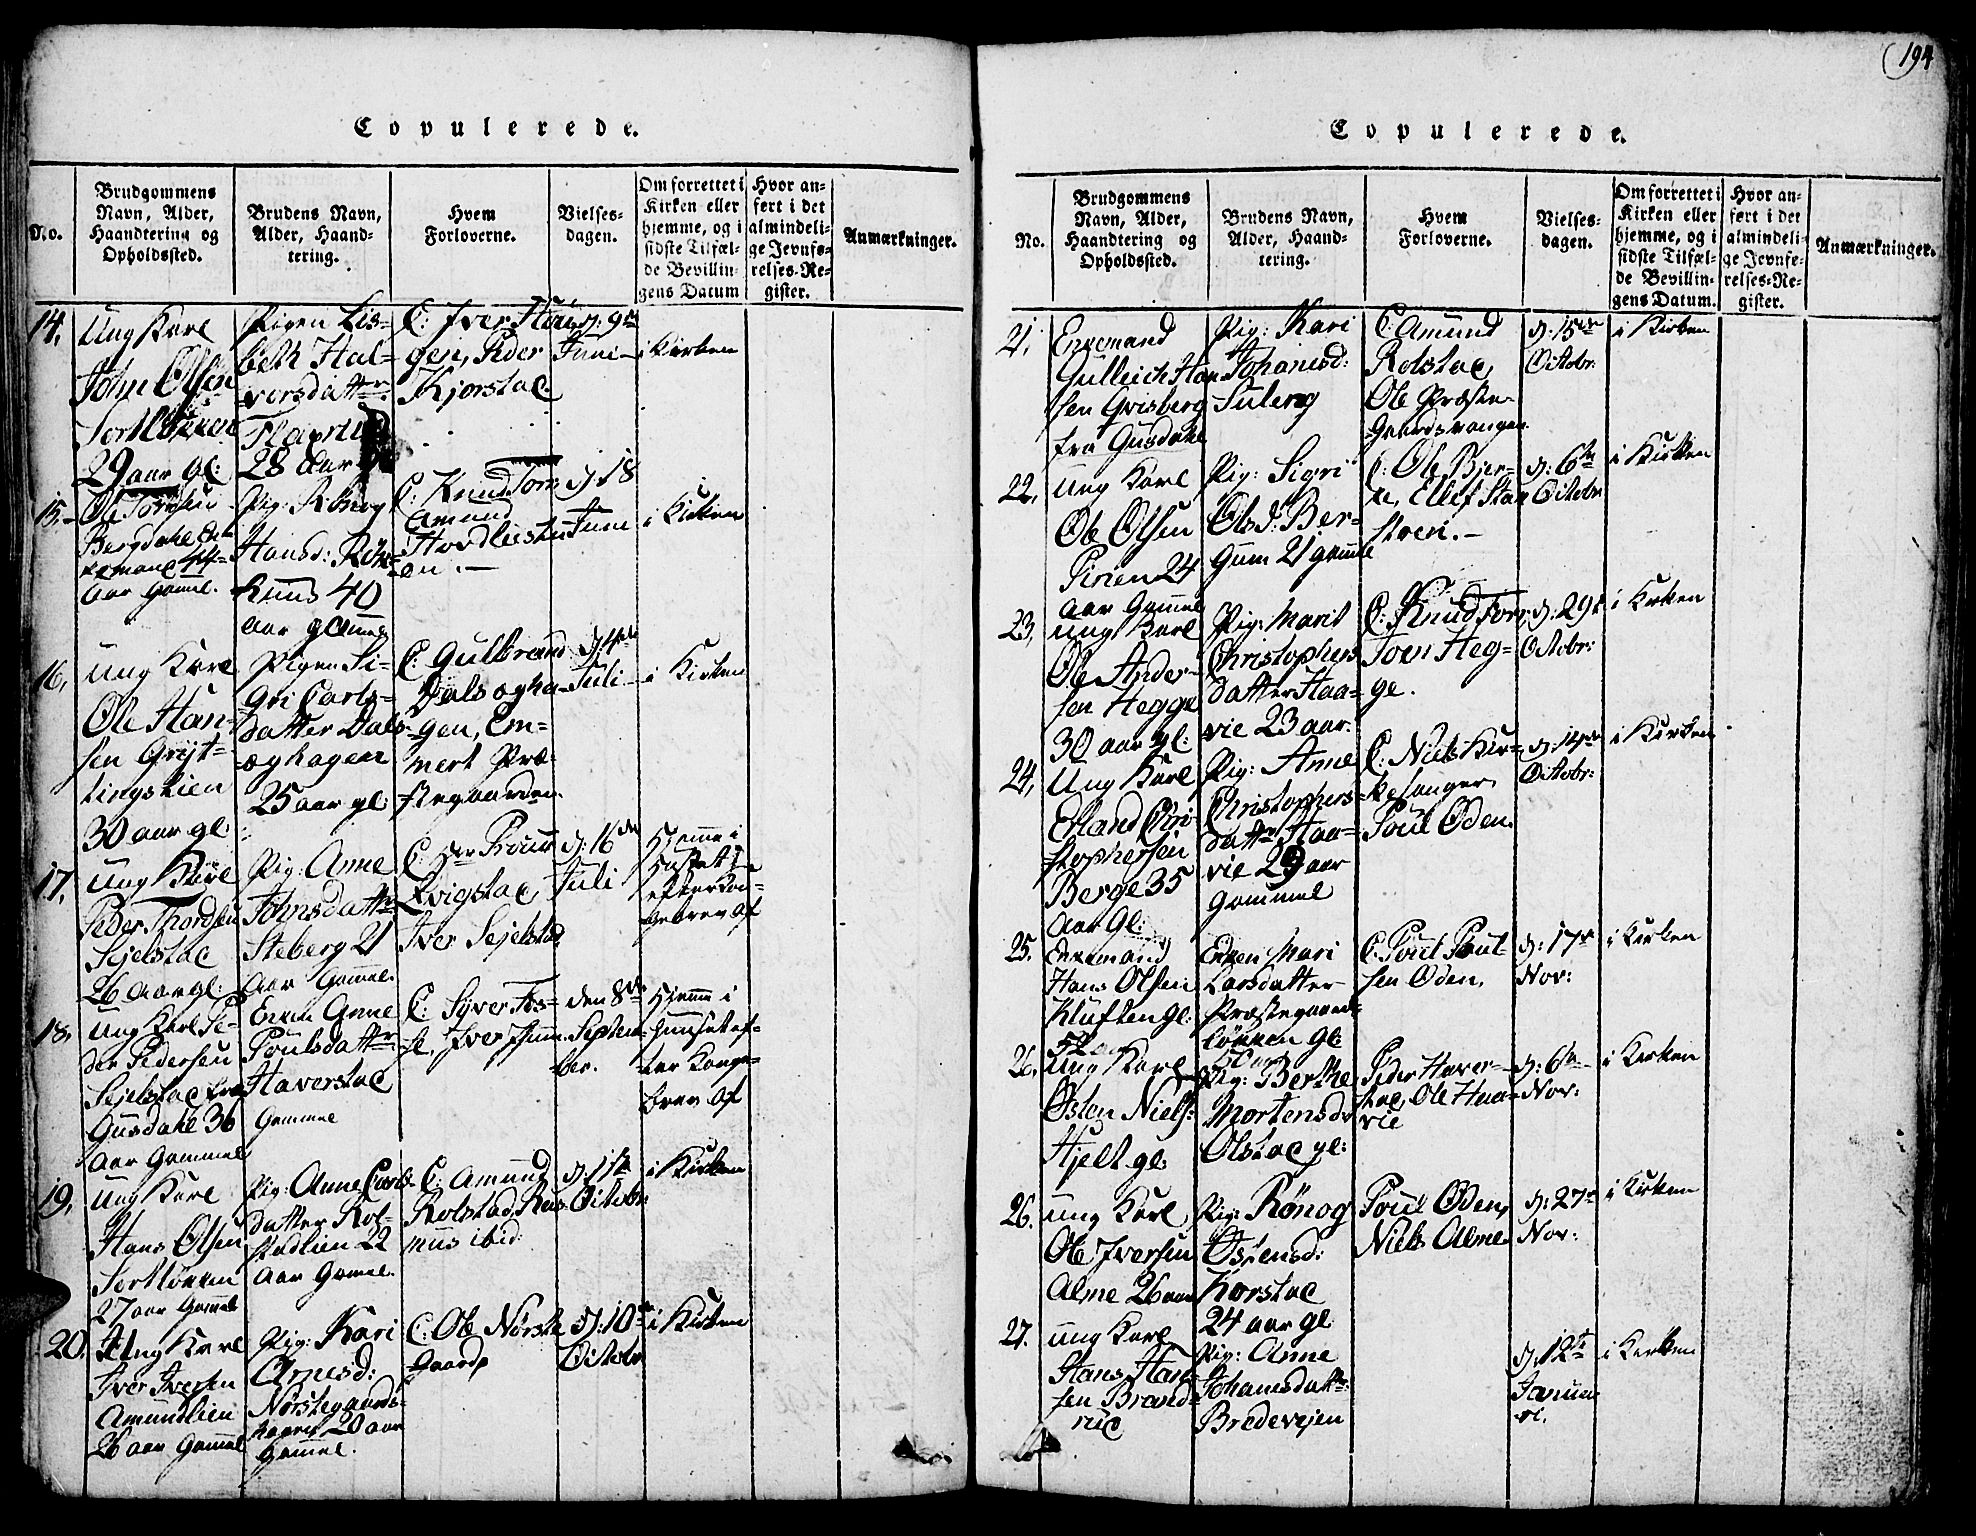 Copulerede.
No.
Brudgommens
Navn, Alder,
Haandtering og
Opholdssted.
Brudens Navn,
Alder, Haand-
tering.
Hvem
Forloverne.
Vielses-
dagen.
Om forrettet i
Kirken eller
hjemme, og i
sidste Tilfæl-
de Bevillin-
gens Datum
Hvor an-
ført i det
almindeli-
ge Jevnfø-
relses-Re-
gister.
Anmærkninger.
14.
Ung Karl
John Olsen
Sortløkken
29 aar gl:
Pigen Lis-
beth Hal-
vorsdatter
28 aar
C: Iver Hau-
gen, Peder
Kjorstad
d: 9de
Juni
i Kirken
15.
Ole
Bergdahl En-
kemand 44
Aar Gamel.
Pig: Rønog
Hansd:
40
aar gamel
C: Knud Torn
Amund
d 18
Juni
i Kirken
16.
Ung Karl
Ole Han-
sen Gryt-
tingslien
30 aar gl:
Pigen Si-
gri Carls-
datter Dals-
øghagen
25 aar gl:
C: Gulbrand
Dalsøgha-
gen, Em-
mert Præ-
stegaarden.
d 4de
Juli
i Kirken
17.
Ung Karl
Peder Thordsen
Sejelstad
26 Aar gl:
Pig: Anne
Johnsdatter
Steberg 21
Aar Gamel.
C: Hr
Qvigstad,
Iver Sejelstad
d: 16de
Juli
Hjemme i
Huset
efter Kon-
gebrev af
18.
Ung Karl Pe-
der Pedersen
Sejelstad fra
Gusdahl 36
Aar Gammel
Enken Anne
Poulsdatter
Haverstad
Gammel
C: Syver
den 8de
Septem-
ber.
Hjemme i
Huuset ef-
ter Konge-
brev af
19.
Ung Karl
Hans Olsen
Sortløkken
27 aar Gamel
Pig: Anne Carls-
datter Rol-
stadlien 22
Aar Gamel.
C: Amund
Rolstad, Ras-
mus ibid:
d: 1ste
Octobr
i Kirken
20.
Ung Karl
Iver Iversen
Amundlien
26 aar Gamel
Pig: Kari
Arnesd:
Nørstegaards-
20 aar
Gamel.
C: Ole Nørste
Gaard
d: 10de
Octobr
i Kirken
194
Copulerede.
No.
Brudgommens
Navn, Alder,
Haandtering og
Opholdssted.
Brudens Navn,
Alder, Haand-
tering.
Hvem
Forloverne.
Vielses-
dagen.
Om forrettet i
Kirken eller
hjemme, og i
sidste Tilfæl-
de Bevillin-
gens Datum.
Hvor an-
ført i det
almindeli-
ge Jevnfø-
relses-Re-
gister.
Anmærkninger.
21.
Enkemand
Gulleich Han-
sen Qvisberg
fra Gusdahl
Pig: Kari
Johanisd:
C: Amund
Rolstad,
Ole Præste-
Gaardsvangen
d: 15de
Octobr:
i Kirken
22.
Ung Karl
Ole Olsen
24
Aar Gamel
Pig: Sigri
Olsd: Ber-
gum 21 gamel
C: Ole Bjer-
ke, Ellef
d: 6te
Octobr
i Kirken
23.
Ung Karl
Ole Ander-
sen Hegge
30 aar gl:
Pig: Marit
Christophers
datter Haa-
vie 23 aar.
C: Knud Torn
Joen Heg-
ge.
d: 29
Octobr:
i Kirken
24.
Ung Karl
Erland Chri-
stophersen
Berge 35
Aar Gl:
Pig: Anne
Christophers-
datter Haa-
vie 29 aar
Gammel
C: Niels Kir-
kesanger,
Poul Øden.
d: 14de
Octobr:
i Kirken
25.
Enkemand
Hans Olsen
Kluften gl:
52 aar
Enken Mari
Larsdatter
Præstegaards-
løkken gl:
50 aar
C: Poul Poul-
sen Øden,
d: 17
Nov:
i Kirken
26.
Ung Karl
Østen Niels:
Hjelt gl:
Pig: Berthe
Mortensd
Olstad gl:
Peder Haver-
stad, Ole Haa-
vie
d: 6te
Nov:
i Kirken
26.
Ung Karl
Ole Iversen
Alme 26 aar
Pig: Rønog
Østensd:
Korstad
24 aar gl
Poul Øden,
Niels Alme
d: 27
Nov:
i Kirken
27.
Ung Karl
Hans Han-
sen Brand-
rud
Pig: Anne
Johanesdatter
Bredevejen
d: 12te
Janua-
ri.
i Kirken